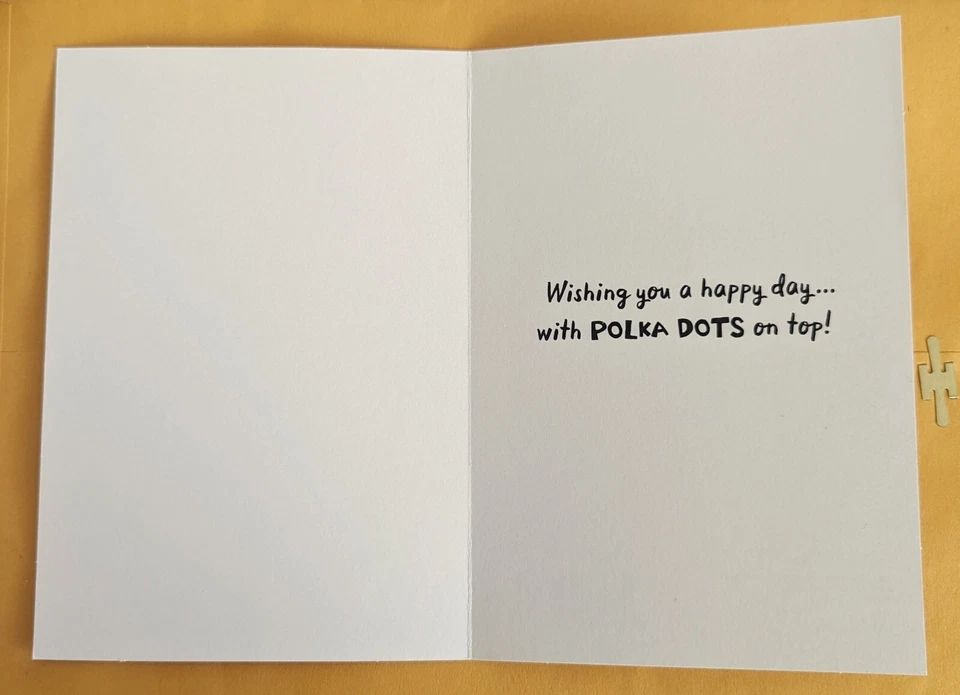 Wishing you a happy day...
with POLKA DOTS on top!